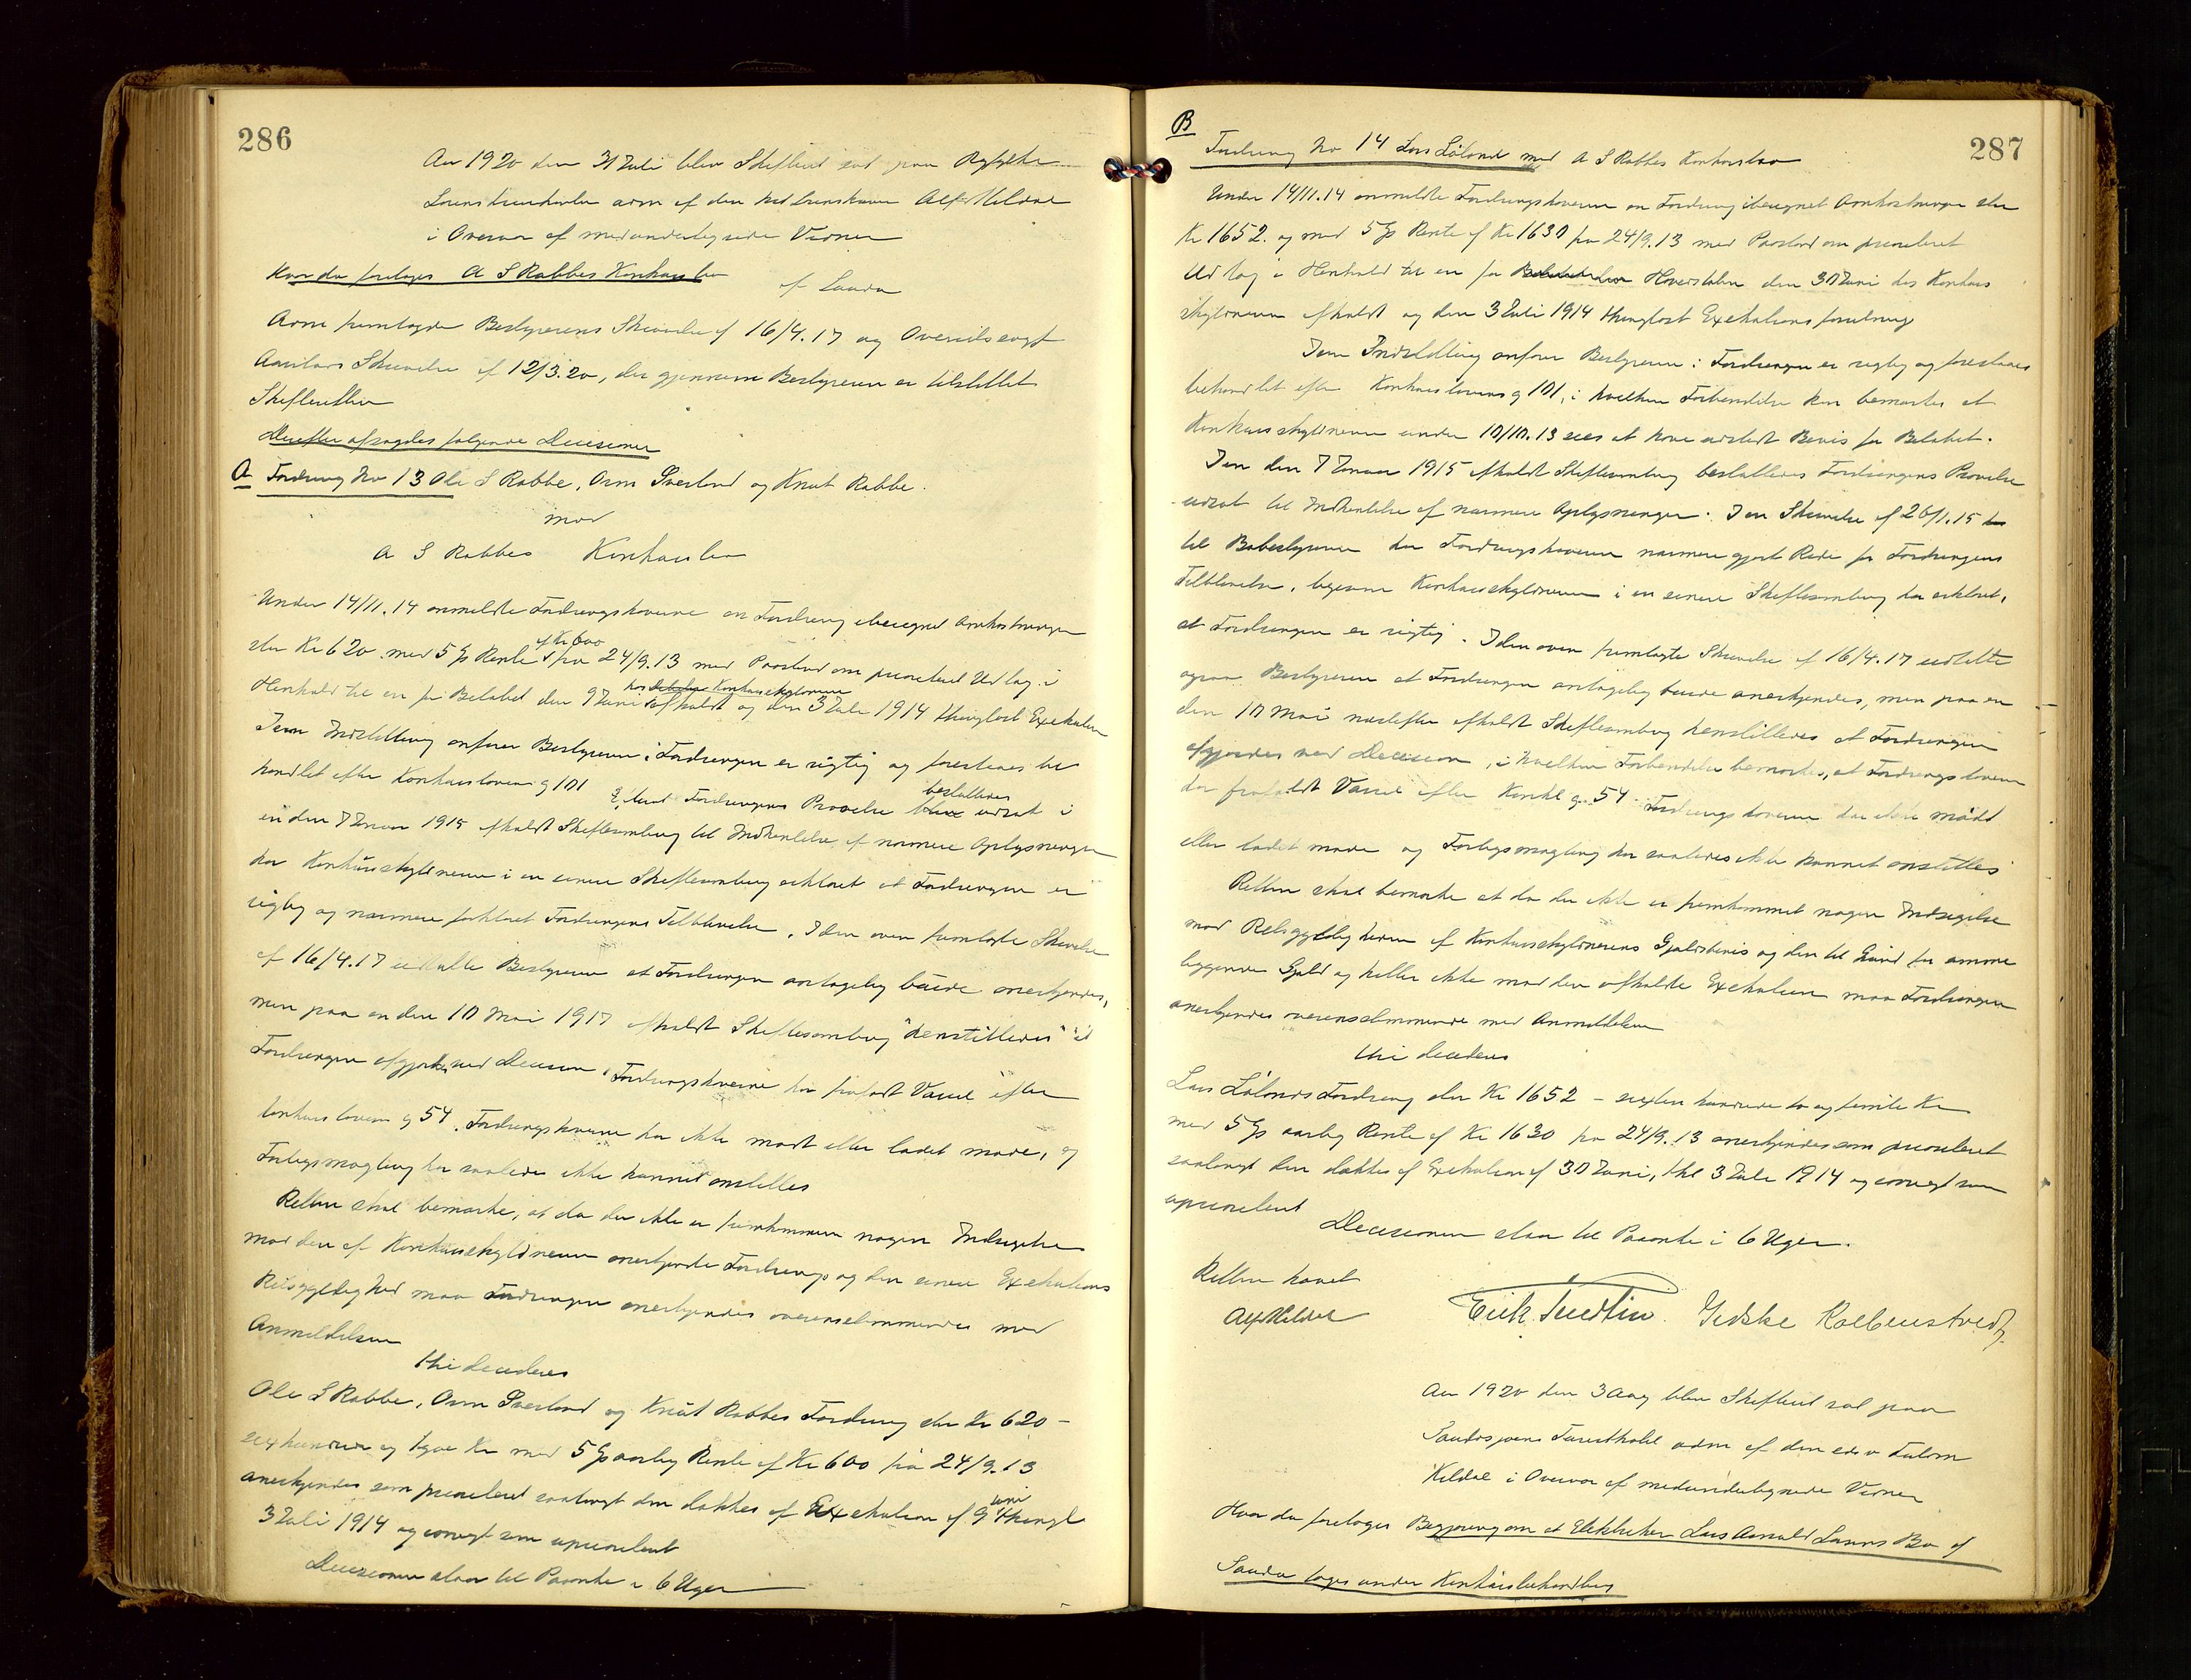 286
Aar 1920 den 31 Juli blev Skifteret sat paa Ryfylke
Sorenskriverkontor adm af den
i Overvær af medundertegnede Vidner
Hvor da foretages A S Rabbes Konkursbo
af Sauda
Adm fremlagde Bestyrerens Skrivelse af 16/4.17 og Overrilsvogt
Skrivelse af 12/3.20, der gjennem Bestyreren er tilstillet
Skifteretten
Derefter afsagdes følgende Decisioner
A Fordring No 13 Ole S Rabbe, Orm Sverland og Knut Rabbe
mod
A S Rabbes Konkursbo
Under 14/11.14 anmeldte Fordringshaverne en Fordring iberegnet Omkostninger
stor Kr 620 med 5 % Rente af Kr 600 fra 24/9.13 med Paastand om prioriteret Udlæg i
Henhold til en for Beløbet den 9 Juni hos Konkursskyldneren afholdt og den 3 Juli 1914 thinglæst Exekution
I sin Indstilling anfører Bestyreren: Fordringen er rigtig og foreslaaes be
handlet efter Konkursloven § 101
Fordringens Prøvelse besluttedes udsat i
en den 7 Januar 1915 afholdt Skiftesamling til Indhentelse af nærmere Oplysninger
har Konkursskyldneren i en senere Skiftesamling erklæret at Fordringen er
rigtig og nærmere forklaret Fordringens Tilblivelse. I den oven fremlagte Skrivelse
af 16/4.17 udtalte Bestyreren at Fordringen antagelig burde anerkjendes,
men paa en den 10 Mai 1917 afholdt Skiftesamling "henstilledes" at
Fordringen afgjordes ved Decision. Fordringshaverne har forfaldt Varsel efter
konkursloven § 54. Fordringshaverne har ikke mødt eller ladet møde, og
Forligsmægling har saaledes ikke kunnet anstilles
Retten skal bemærke, at da der ikke er fremkommen nogen Indsigelse
mod den af Konkursskyldneren anerkjendte Fordring og den senere Exekutions
Retsgyldighed maa Fordringen anerkjendes overensstemmende med
Anmeldelsen
thi decideres
Ole S Rabbe, Orm Sverland og Knut Rabbes Fordring stor Kr 620 –
sexhundrede og tyve Kr med 5 % aarlig Rente af Kr 600 fra 24/9.13
anerkjendes som prioriteret saalangt den dækkes af Exekution af 9 Juni thingl
3 Juli 1914 og forøvrigt som uprioriteret
Decisionen staar til Paaanke i 6 Uger
287
B
Fordring No 14 Lars Løland mod A S Rabbes Konkursbo
Under 14/11.14 anmeldte Fordringshaveren en Fordring iberegnet Omkostninger stor
Kr 1652. og med 5 % Rente af Kr 1630 fra 24/9.13 med Paastand om prioriteret
Udlæg i Henhold til en for Hovedstolen den 30 Juni hos Konkurs
skyldneren afholdt og den 3 Juli 1914 thinglæst Exekutionsforretning
I sin Indstilling anfører Bestyreren: Fordringen er rigtig og foreslaaes
behandlet efter Konkurslovens § 101, i hvilken Forbindelse kan bemærkes at
Konkursskyldneren under 10/10.13 sees at have udstedt Bevis for Beløbet.
I en den 7 Januar 1915 afholdt Skiftesamling besluttedes Fordringens Prøvelse
udsat til Indhentelse af nærmere Oplysninger. I en Skrivelse af 26/1.15
til Bobestyreren har Fordringshaveren nærmere gjort Rede for Fordringens
Tilblivelse, ligesom Konkursskyldneren i en senere Skiftesamling har erklæret,
at Fordringen er rigtig. I den oven fremlagte Skrivelse af 16/4.17 udtalte
ogsaa Bestyreren at Fordringen antagelig burde anerkjendes, men paa en
den 10 Mai næstefter afholdt Skiftesamling henstilledes at Fordringen
afgjordes ved Decision, i hvilken Forbindelse bemærkes, at Fordringshaveren
har forfaldt Varsel efter Konkl § 54. Fordringshaveren har ikke mødt
eller ladet møde og Forligsmægling har saaledes ikke kunnet anstilles
Retten skal bemærke at da der ikke er fremkommet nogen Indsigelse
mod Retsgyldigheden af Konkursskyldnerens Gjældsbevis og den til Grund for samme
liggende Gjæld og heller ikke mod den afholdte Exekution maa Fordringen
anerkjendes overensstemmende med Anmeldelsen
thi decideres
Lars Lølands Fordring stor Kr 1652 – sexten hundrede to og femti Kr
med 5 % aarlig Rente af Kr 1630 fra 24/9.13 anerkjendes som prioriteret
saalangt den dækkes af Exekution af 30 Juni, thl 3 Juli 1914 og forøvrigt som
uprioriteret
Decisionen staar til Paaanke i 6 Uger.
Retten hævet
Alf Kildal Erik Tuedtin. Gidske Kolbenstvedt
Aar 1920 den 3 Aug blev Skifteret sat paa
Saudasjøens Turisthotel adm af den edsv Fuldm
Kildal i Overvær af medundertegnede Vidner
Hvor da foretages Begjæring om at Elektriker Lars Bo af
Sauda tages under Konkursbehandling